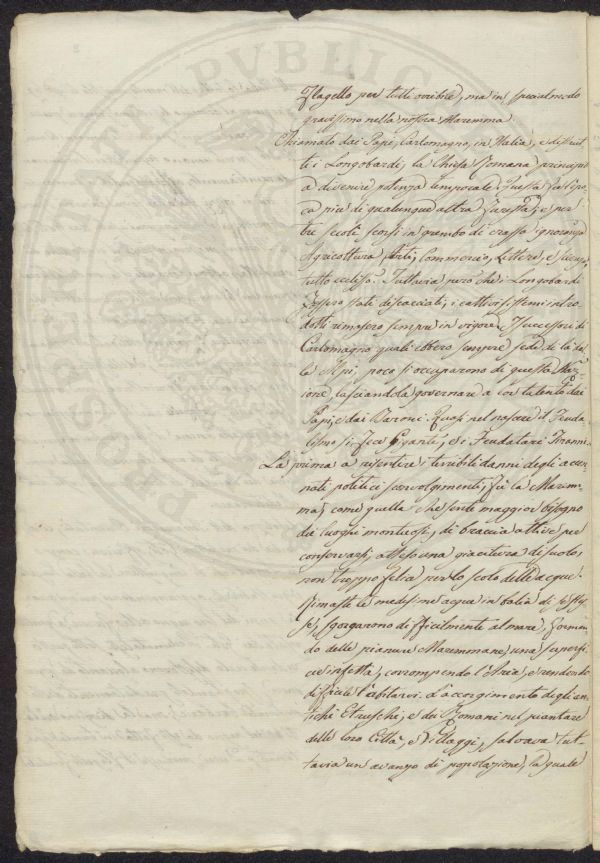 Flagello per tutti orribile, ma in special modo
gravissimo nella nostra Maremma.
Chiamato dai Papi, Carlomagno, in Italia, e disfat-
ti i Longobardi, la Chiesa Romana principiò
a divenire potenza temporale. Questa fu l'epo-
ca più di qualunque altra funesta; e per
tre secoli scorsi in grembo di crassa ignoranza
Agricoltura, Arti, Commercio, Lettere, e
tutto eclissò. Tuttavia però che i Longobardi
fossero stati discacciati, i cattivi sistemi intro-
dotti rimasero sempre in vigore. I successori di
Carlomagno quali ebbero sempre sede di là dal-
le Alpi, poco si occuparono di questa Naz-
ione, lasciandola governare a lor talento dai
Papi, e dai Baroni. Quasi nel nascere il Feuda-
lismo si fece Gigante, e i Feudatari Tiranni.
La prima a risentire i terribili danni degli accen-
nati politici sconvolgimenti, fu la Marem-
ma, come quella che sente maggior bisogno
dei luoghi montuosi, di braccia attive per
conservarsi, attesa una giacitura di suolo,
non troppo felice per lo scolo delle acque.
Rimaste le medesime acque in balia di se stes-
se, sgorgarono difficilmente al mare, forman-
do delle pianure Maremmane, una superfi-
cie infetta, corrompendo l'Aria, e rendendo
difficile l'abitarvi. L'accorgimento degli an-
tichi Etruschi, e dei Romani nel piantare
delle loro Città, e Villaggi, salvava tut-
tavia un avanzo di popolazione, la quale
PVBLIC